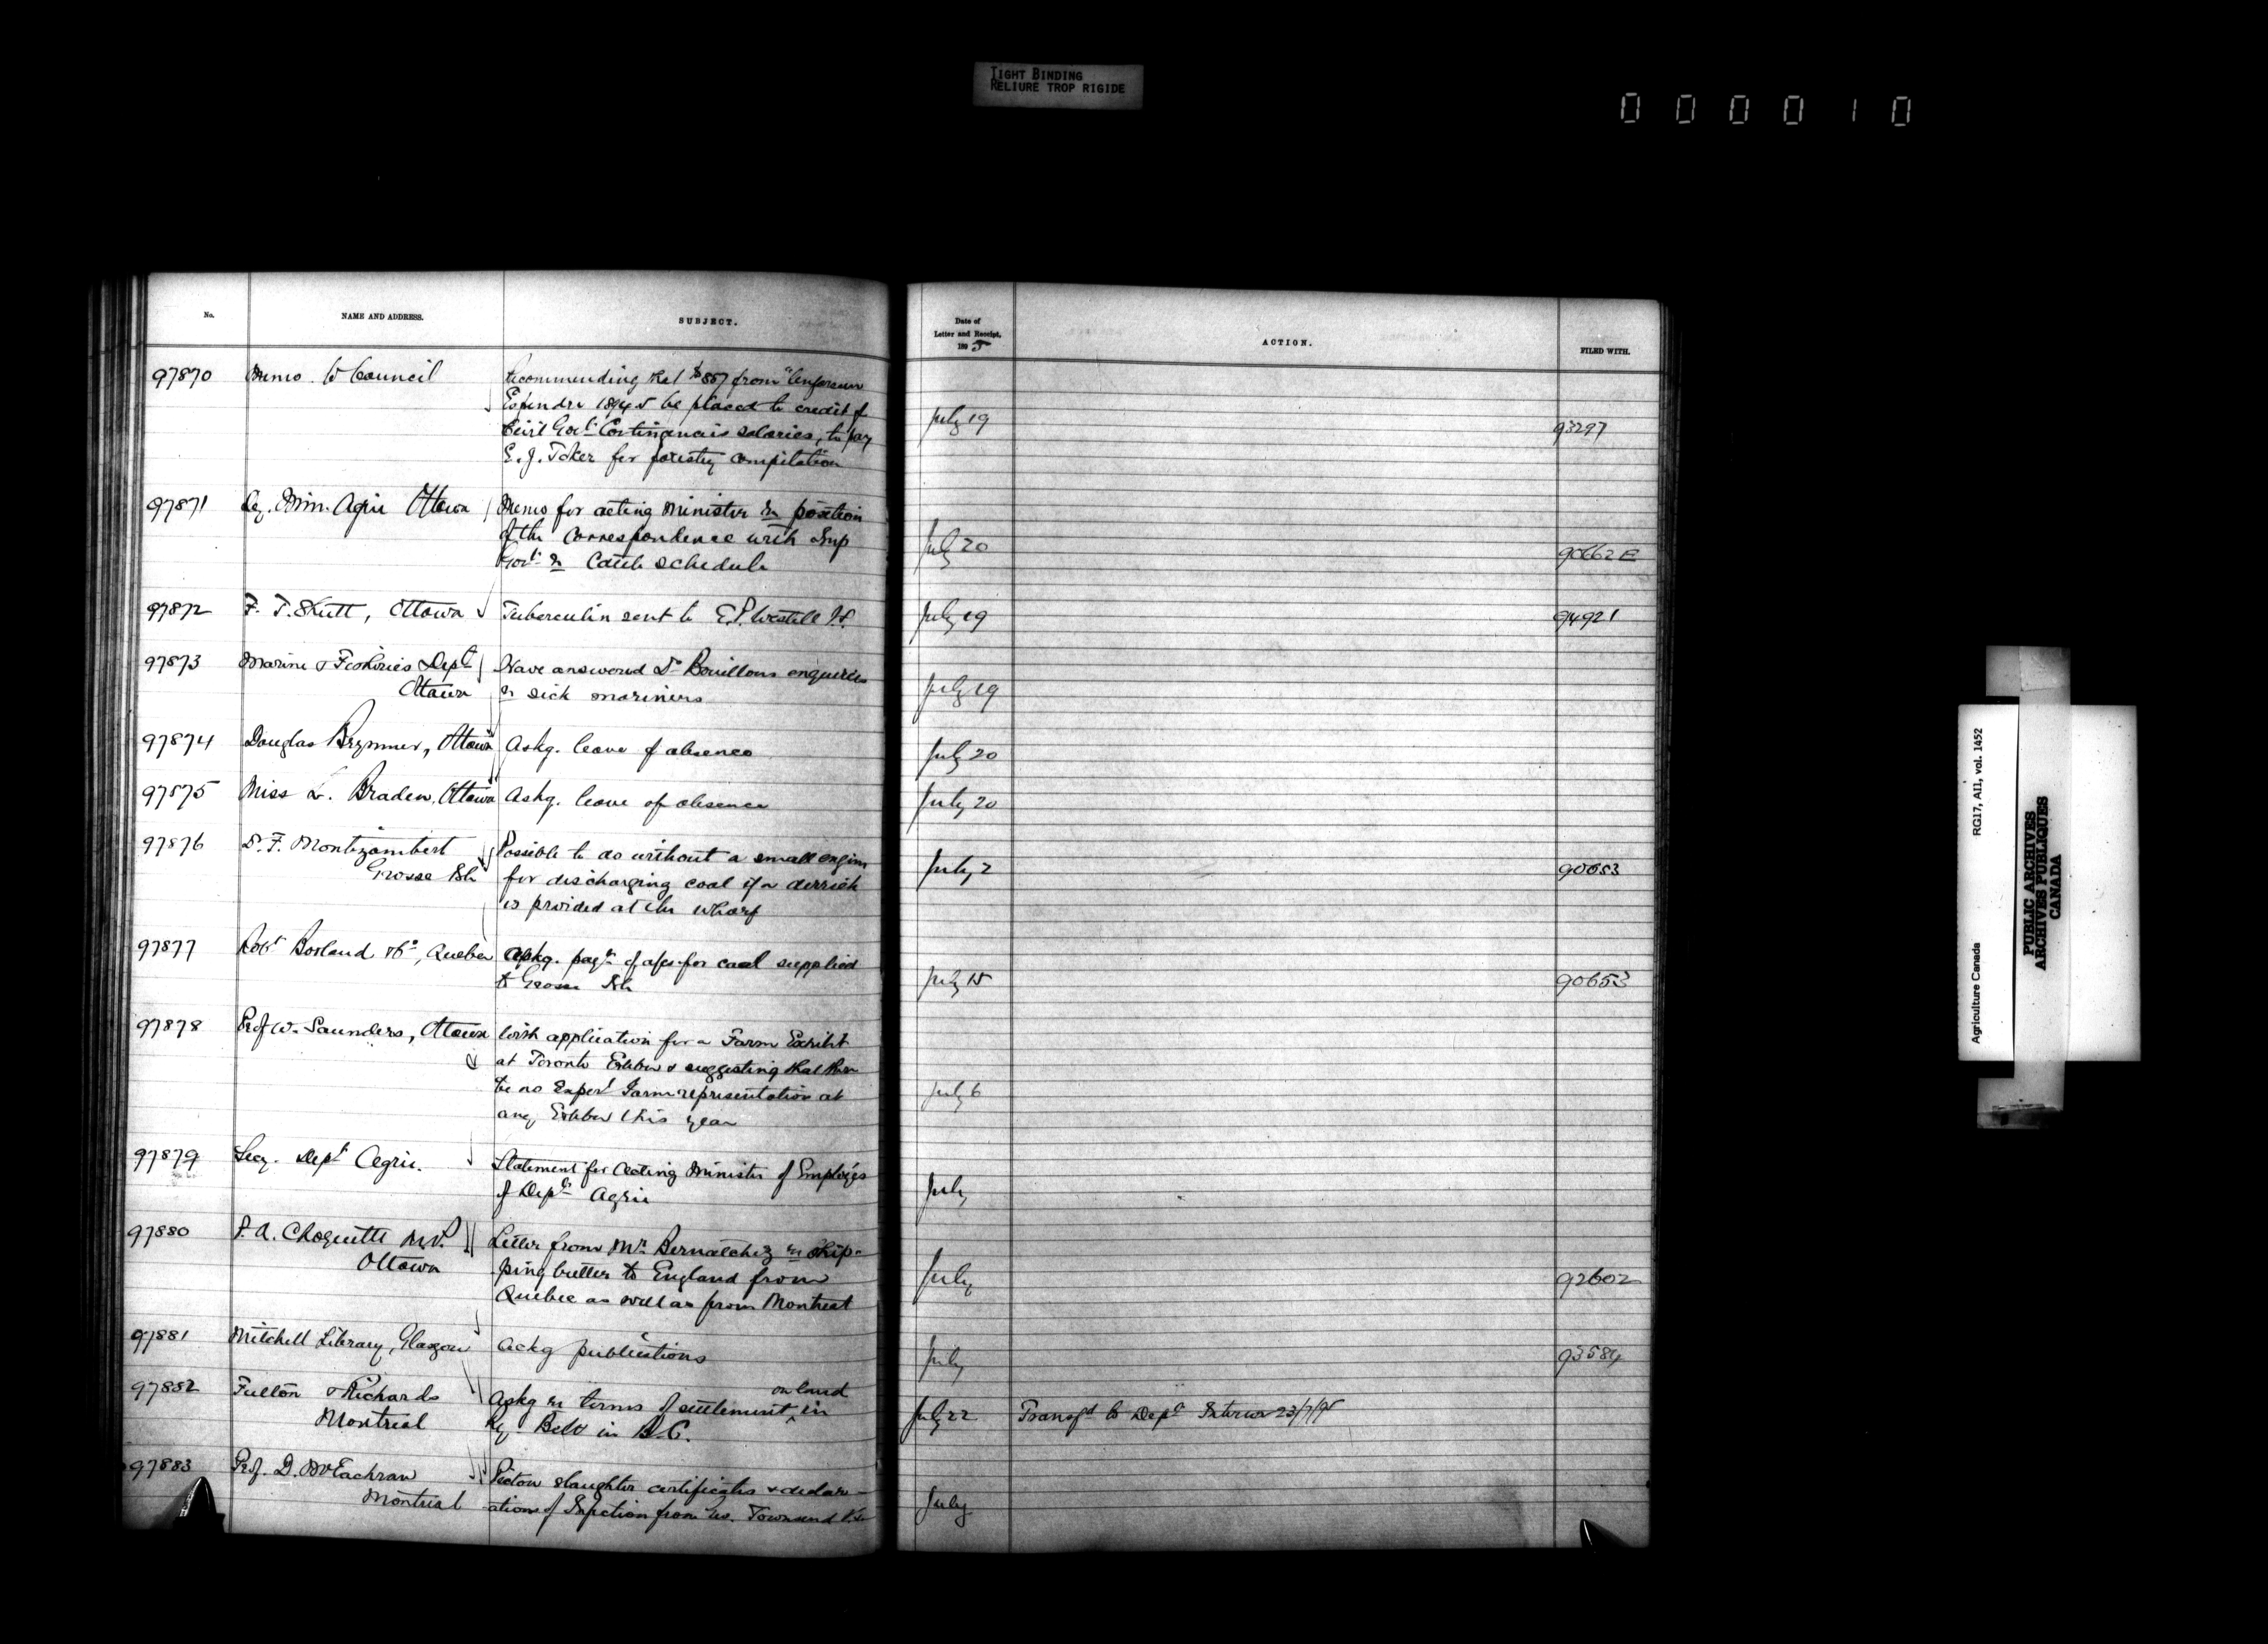 TIGHT BINDING
RELIURE TROP RIGIDE
000010
No.
NAME AND ADDRESS.
SUBJECT.
Date of
Letter and Receipt,
1895
ACTION.
FILED WITH.
97870 Memo. to Council
Recommending that $887 from "Unforseen
Expendre 1894-5 be placed to credit of
Civil Govt. Contingencies salaries, to pay
E. J. Toker for forestry compilation
July 19
93297
97871 Dep. Min. Agric Ottawa
Memo for acting Minister re position
of the Correspondence with Imp
Govt. re Cattle schedule
July 20
90662 E
97872 F. T. Shutt, Ottawa
Tuberculin sent to E.P. Westell V.S.
July 19
94921
97873 Marine & Fisheries Dept
Ottawa
Have answered Dr Bouillons enquiries
re sick mariners
July 19
97874 Douglas Brymner, Ottawa
Askg. leave of absence
July 20
97875 Miss L. Braden, Ottawa
Askg. leave of absence
July 20
97876 Dr. F. Montizambert
Grosse Isle
Possible to do without a small engine
for discharging coal if a derrick
is provided at the wharf
July 2
90653
97877 Robt Borland & Co, Quebec
Askg. paymt of a/cs for coal supplied
to Grosse Isle
July 15
90653
97878 Prof W. Saunders, Ottawa
With application for a Farm Exhibit
at Toronto Exhbn & suggesting that there
be no Experl Farm representation at
any Exhbn this year
July 6
97879 Secy. Dept Agric.
Statement for Acting Minister of Employés
of Dept Agric
July
97880 P. A. Choquette M.P.
Ottawa
Letter from Mr Bernatchez re ship-
ping butter to England from
Quebec as well as from Montreal
July
92602
97881 Mitchell Library, Glasgow
Ackg publications
July
93584
97882 Fulton & Richards
Montreal
on land
Askg re terms of settlement ^ in
Ry. Belt in B.C.
July 22
Transfd to Dept Interior 23/7/95
97883 Prof. D. McEachran
Montreal
Pictou slaughter certificates & declar-
ations of Infection from Geo. Townsend V.S.
July
Agriculture Canada
RG17, AI1, vol. 1452
PUBLIC ARCHIVES
ARCHIVES PUBLIQUES
CANADA